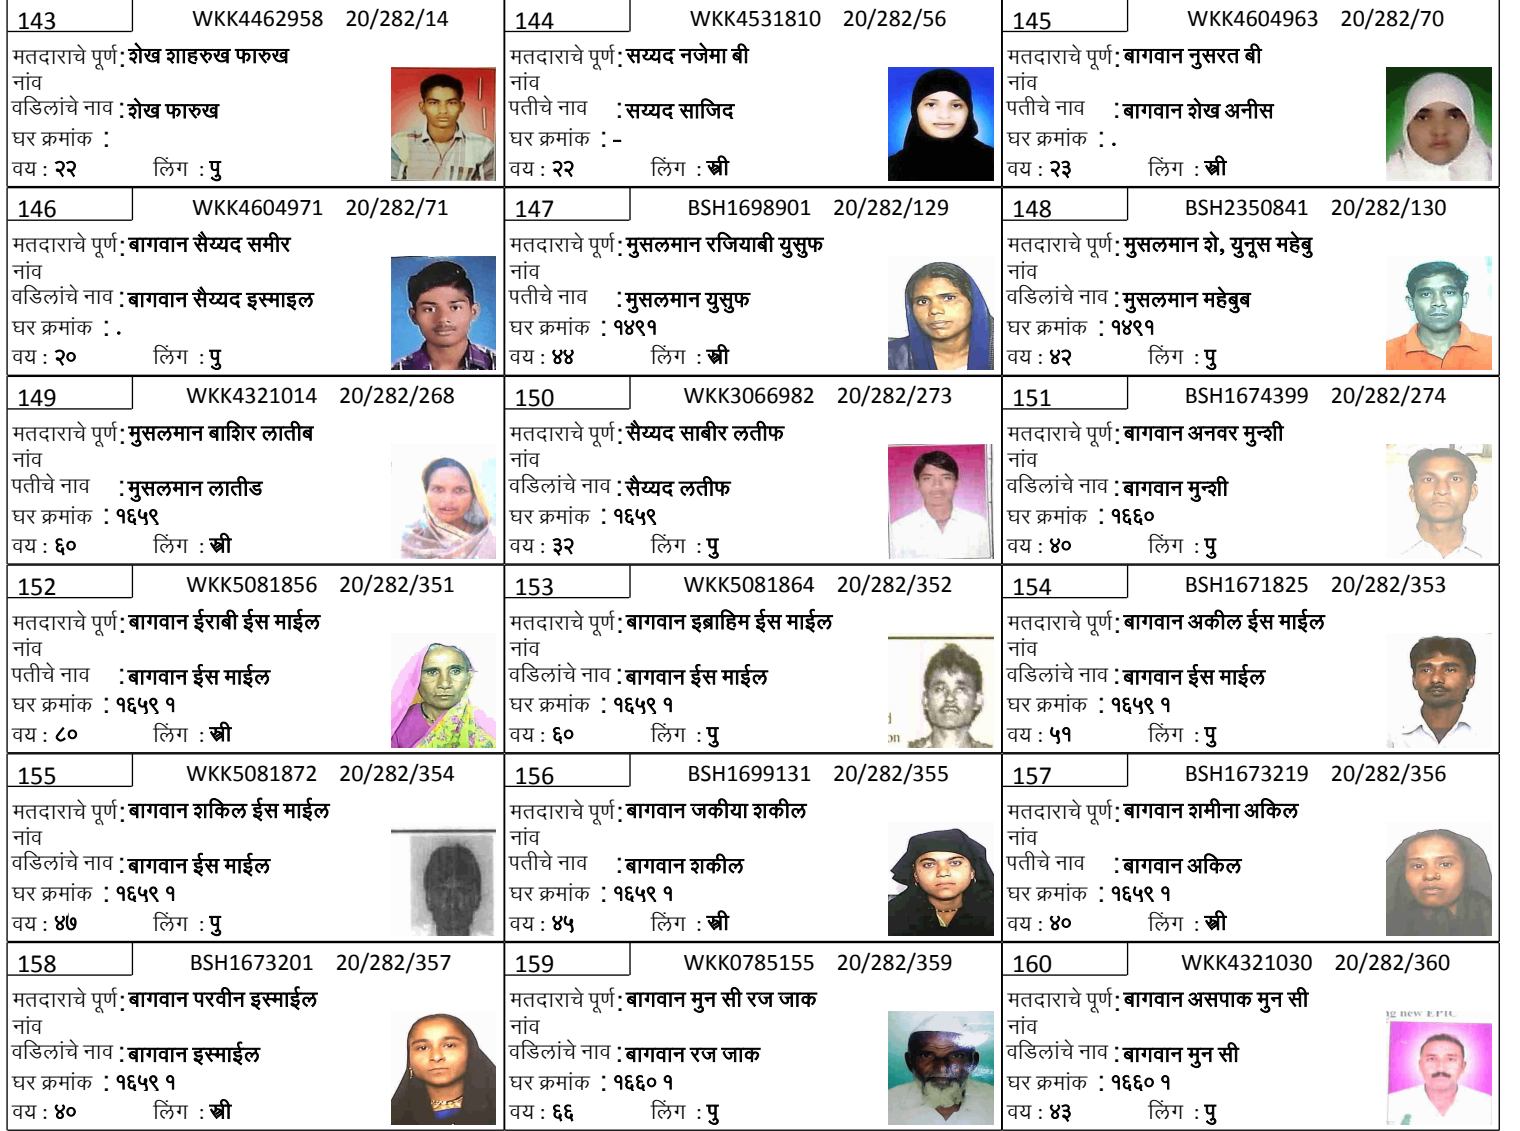 143 WKK4462958 20/282/14
मतदाराचे पूर्ण : शेख शाहरुख फारुख
नांव
वडिलांचे नाव : शेख फारुख
घर क्रमांक :
वय : २२ लिंग : पु
144 WKK4531810 20/282/56
मतदाराचे पूर्ण : सय्यद नजेमा बी
नांव
पतीचे नाव : सय्यद साजिद
घर क्रमांक : -
वय : २२ लिंग : स्त्री
145 WKK4604963 20/282/70
मतदाराचे पूर्ण : बागवान नुसरत बी
नांव
पतीचे नाव : बागवान शेख अनीस
घर क्रमांक : .
वय : २३ लिंग : स्त्री
146 WKK4604971 20/282/71
मतदाराचे पूर्ण : बागवान सैय्यद समीर
नांव
वडिलांचे नाव : बागवान सैय्यद इस्माइल
घर क्रमांक : .
वय : २० लिंग : पु
147 BSH1698901 20/282/129
मतदाराचे पूर्ण : मुसलमान रजियाबी युसुफ
नांव
पतीचे नाव : मुसलमान युसुफ
घर क्रमांक : १४९१
वय : ४४ लिंग : स्त्री
148 BSH2350841 20/282/130
मतदाराचे पूर्ण : मुसलमान शे, युनूस महेबु
नांव
वडिलांचे नाव : मुसलमान महेबुब
घर क्रमांक : १४९१
वय : ४२ लिंग : पु
149 WKK4321014 20/282/268
मतदाराचे पूर्ण : मुसलमान बाशिर लातीब
नांव
पतीचे नाव : मुसलमान लातीड
घर क्रमांक : १६५९
वय : ६० लिंग : स्त्री
150 WKK3066982 20/282/273
मतदाराचे पूर्ण : सैय्यद साबीर लतीफ
नांव
वडिलांचे नाव : सैय्यद लतीफ
घर क्रमांक : १६५९
वय : ३२ लिंग : पु
151 BSH1674399 20/282/274
मतदाराचे पूर्ण : बागवान अनवर मुन्शी
नांव
वडिलांचे नाव : बागवान मुन्शी
घर क्रमांक : १६६०
वय : ४० लिंग : पु
152 WKK5081856 20/282/351
मतदाराचे पूर्ण : बागवान ईराबी ईस माईल
नांव
पतीचे नाव : बागवान ईस माईल
घर क्रमांक : १६५९ १
वय : ८० लिंग : स्त्री
153 WKK5081864 20/282/352
मतदाराचे पूर्ण : बागवान इब्राहिम ईस माईल
नांव
वडिलांचे नाव : बागवान ईस माईल
घर क्रमांक : १६५९ १
वय : ६० लिंग : पु
154 BSH1671825 20/282/353
मतदाराचे पूर्ण : बागवान अकील ईस माईल
नांव
वडिलांचे नाव : बागवान ईस माईल
घर क्रमांक : १६५९ १
वय : ५१ लिंग : पु
155 WKK5081872 20/282/354
मतदाराचे पूर्ण : बागवान शकिल ईस माईल
नांव
वडिलांचे नाव : बागवान ईस माईल
घर क्रमांक : १६५९ १
वय : ४७ लिंग : पु
156 BSH1699131 20/282/355
मतदाराचे पूर्ण : बागवान जकीया शकील
नांव
पतीचे नाव : बागवान शकील
घर क्रमांक : १६५९ १
वय : ४५ लिंग : स्त्री
157 BSH1673219 20/282/356
मतदाराचे पूर्ण : बागवान शमीना अकिल
नांव
पतीचे नाव : बागवान अकिल
घर क्रमांक : १६५९ १
वय : ४० लिंग : स्त्री
158 BSH1673201 20/282/357
मतदाराचे पूर्ण : बागवान परवीन इस्माईल
नांव
वडिलांचे नाव : बागवान इस्माईल
घर क्रमांक : १६५९ १
वय : ४० लिंग : स्त्री
159 WKK0785155 20/282/359
मतदाराचे पूर्ण : बागवान मुन सी रज जाक
नांव
वडिलांचे नाव : बागवान रज जाक
घर क्रमांक : १६६० १
वय : ६६ लिंग : पु
160 WKK4321030 20/282/360
मतदाराचे पूर्ण : बागवान असपाक मुन सी
नांव
new EPIC
वडिलांचे नाव : बागवान मुन सी
घर क्रमांक : १६६० १
वय : ४३ लिंग : पु